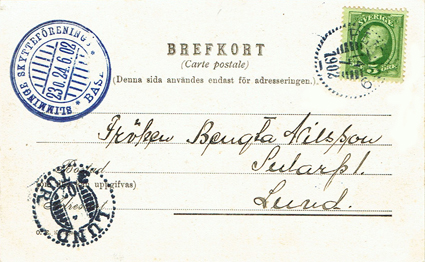 BREFKORT
(Carte postale)
(Denna sida användes endast för adresseringen.)
SLIMMINGE SKYTTEFÖRENING
23 O. 24.6.02
BAS
SVERIGE
5 ÖRE
1902
Fröken Bengta Nilsson
Bostad
uppgifvas)
Lund.
LUND
TUR